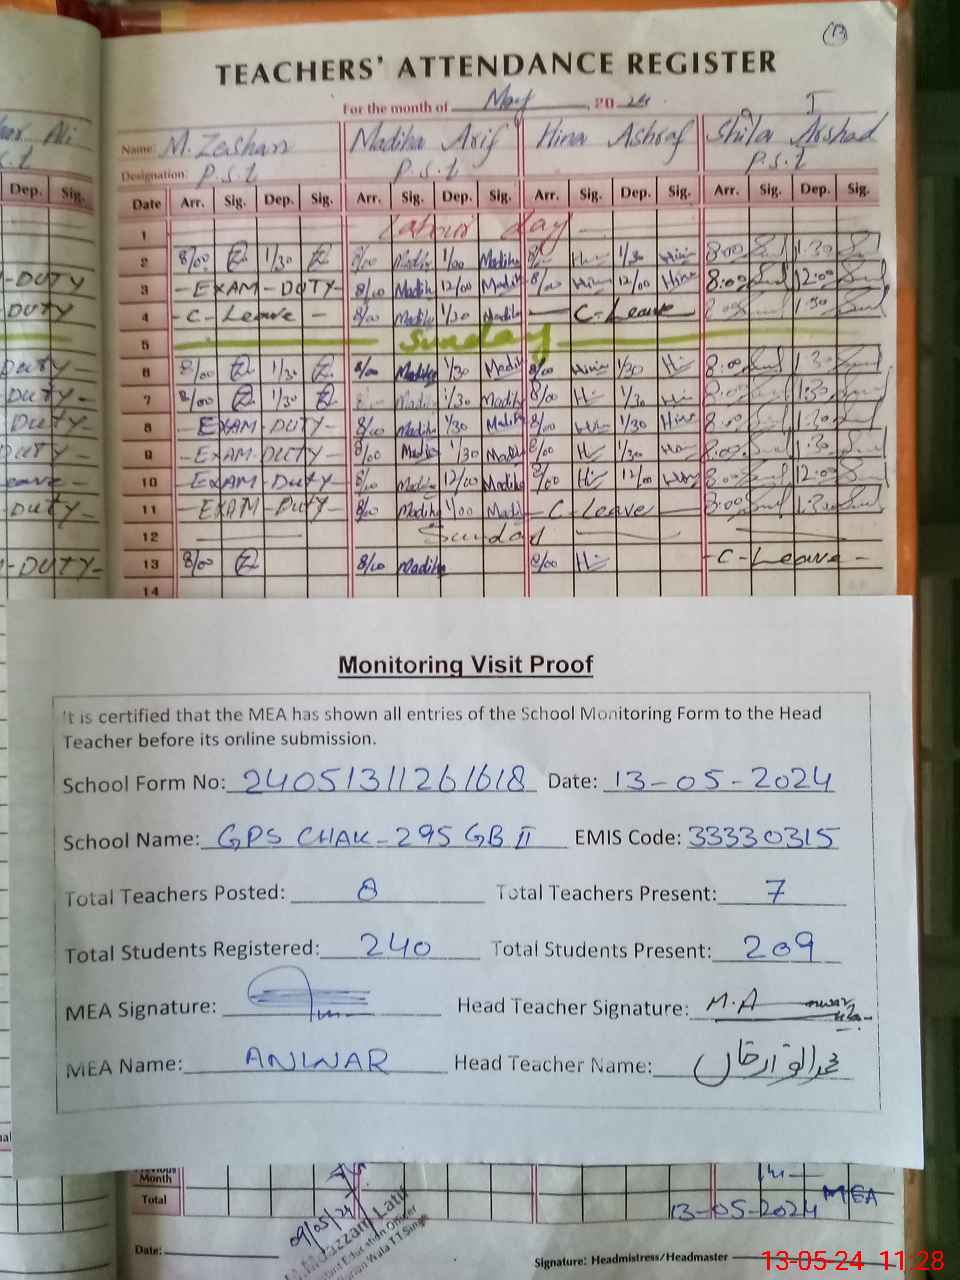 13
TEACHERS' ATTENDANCE REGISTER
For the month of May, 2024
Ali
Name: M. Zeshan Madiha Arif Hina Ashraf Shila Arshad
Designation: P.S.T P.S.T P.S.T
Dep. Sig. Date Arr. Sig. Dep. Sig. Arr. Sig. Dep. Sig. Arr. Sig. Dep. Sig. Arr. Sig. Dep. Sig.
1 Labour day
2 8/00 1/30 8/00 Madiha 1/00 Madiha 8/00 Hina 1/30 Hina 8:00 1:30
-DUTY 3 -EXAM-DUTY- 8/00 Madiha 12/00 Madiha 8/00 Hina 12/00 Hina 8:00 12:00
DUTY 4 -C-Leave- 8/00 Madiha 1/30 Madiha - C-Leave - 8:00 1:30
5 Sunday
DUTY- 6 8/00 1/30 8/00 Madiha 1/30 Madiha 8/00 Hina 1/30 Hi 8:00 1:30
DUTY- 7 8/00 1/30 Madiha 1/30 Madiha 8/00 Hi 1/30 Hi 8:00 1:30
DUTY- 8 -EXAM-DUTY- 8/00 Madiha 1/30 Madiha 8/00 Hi 1/30 Hina 8:00 1:30
DUTY- 9 -EXAM-DUTY- 8/00 Madiha 1/30 Madiha 8/00 Hi 1/30 8:00 1:30
Leave- 10 -EXAM-DUTY- 8/00 Madiha 12/00 Madiha 8/00 Hi 12/00 Hina 8:00 12:00
DUTY- 11 -EXAM-DUTY- 8/00 Madiha 1/00 Madiha - C-Leave - 8:00 1:30
12 Sunday
-DUTY- 13 8/00 8/00 Madiha 8/00 Hi - C-Leave -
14
Monitoring Visit Proof
It is certified that the MEA has shown all entries of the School Monitoring Form to the Head
Teacher before its online submission.
School Form No: 24051311261618 Date: 13-05-2024
School Name: GPS CHAK-295 GB II EMIS Code: 33330315
Total Teachers Posted: 8 Total Teachers Present: 7
Total Students Registered: 240 Total Students Present: 209
MEA Signature: Head Teacher Signature: M.A
MEA Name: ANWAR Head Teacher Name:
Previous
Month
Total
MEA
13-05-2024
09/05/24
Moazzam Latif
Assistant Education Officer
Date:
Signature: Headmistress/Headmaster
13-05-24 11:28